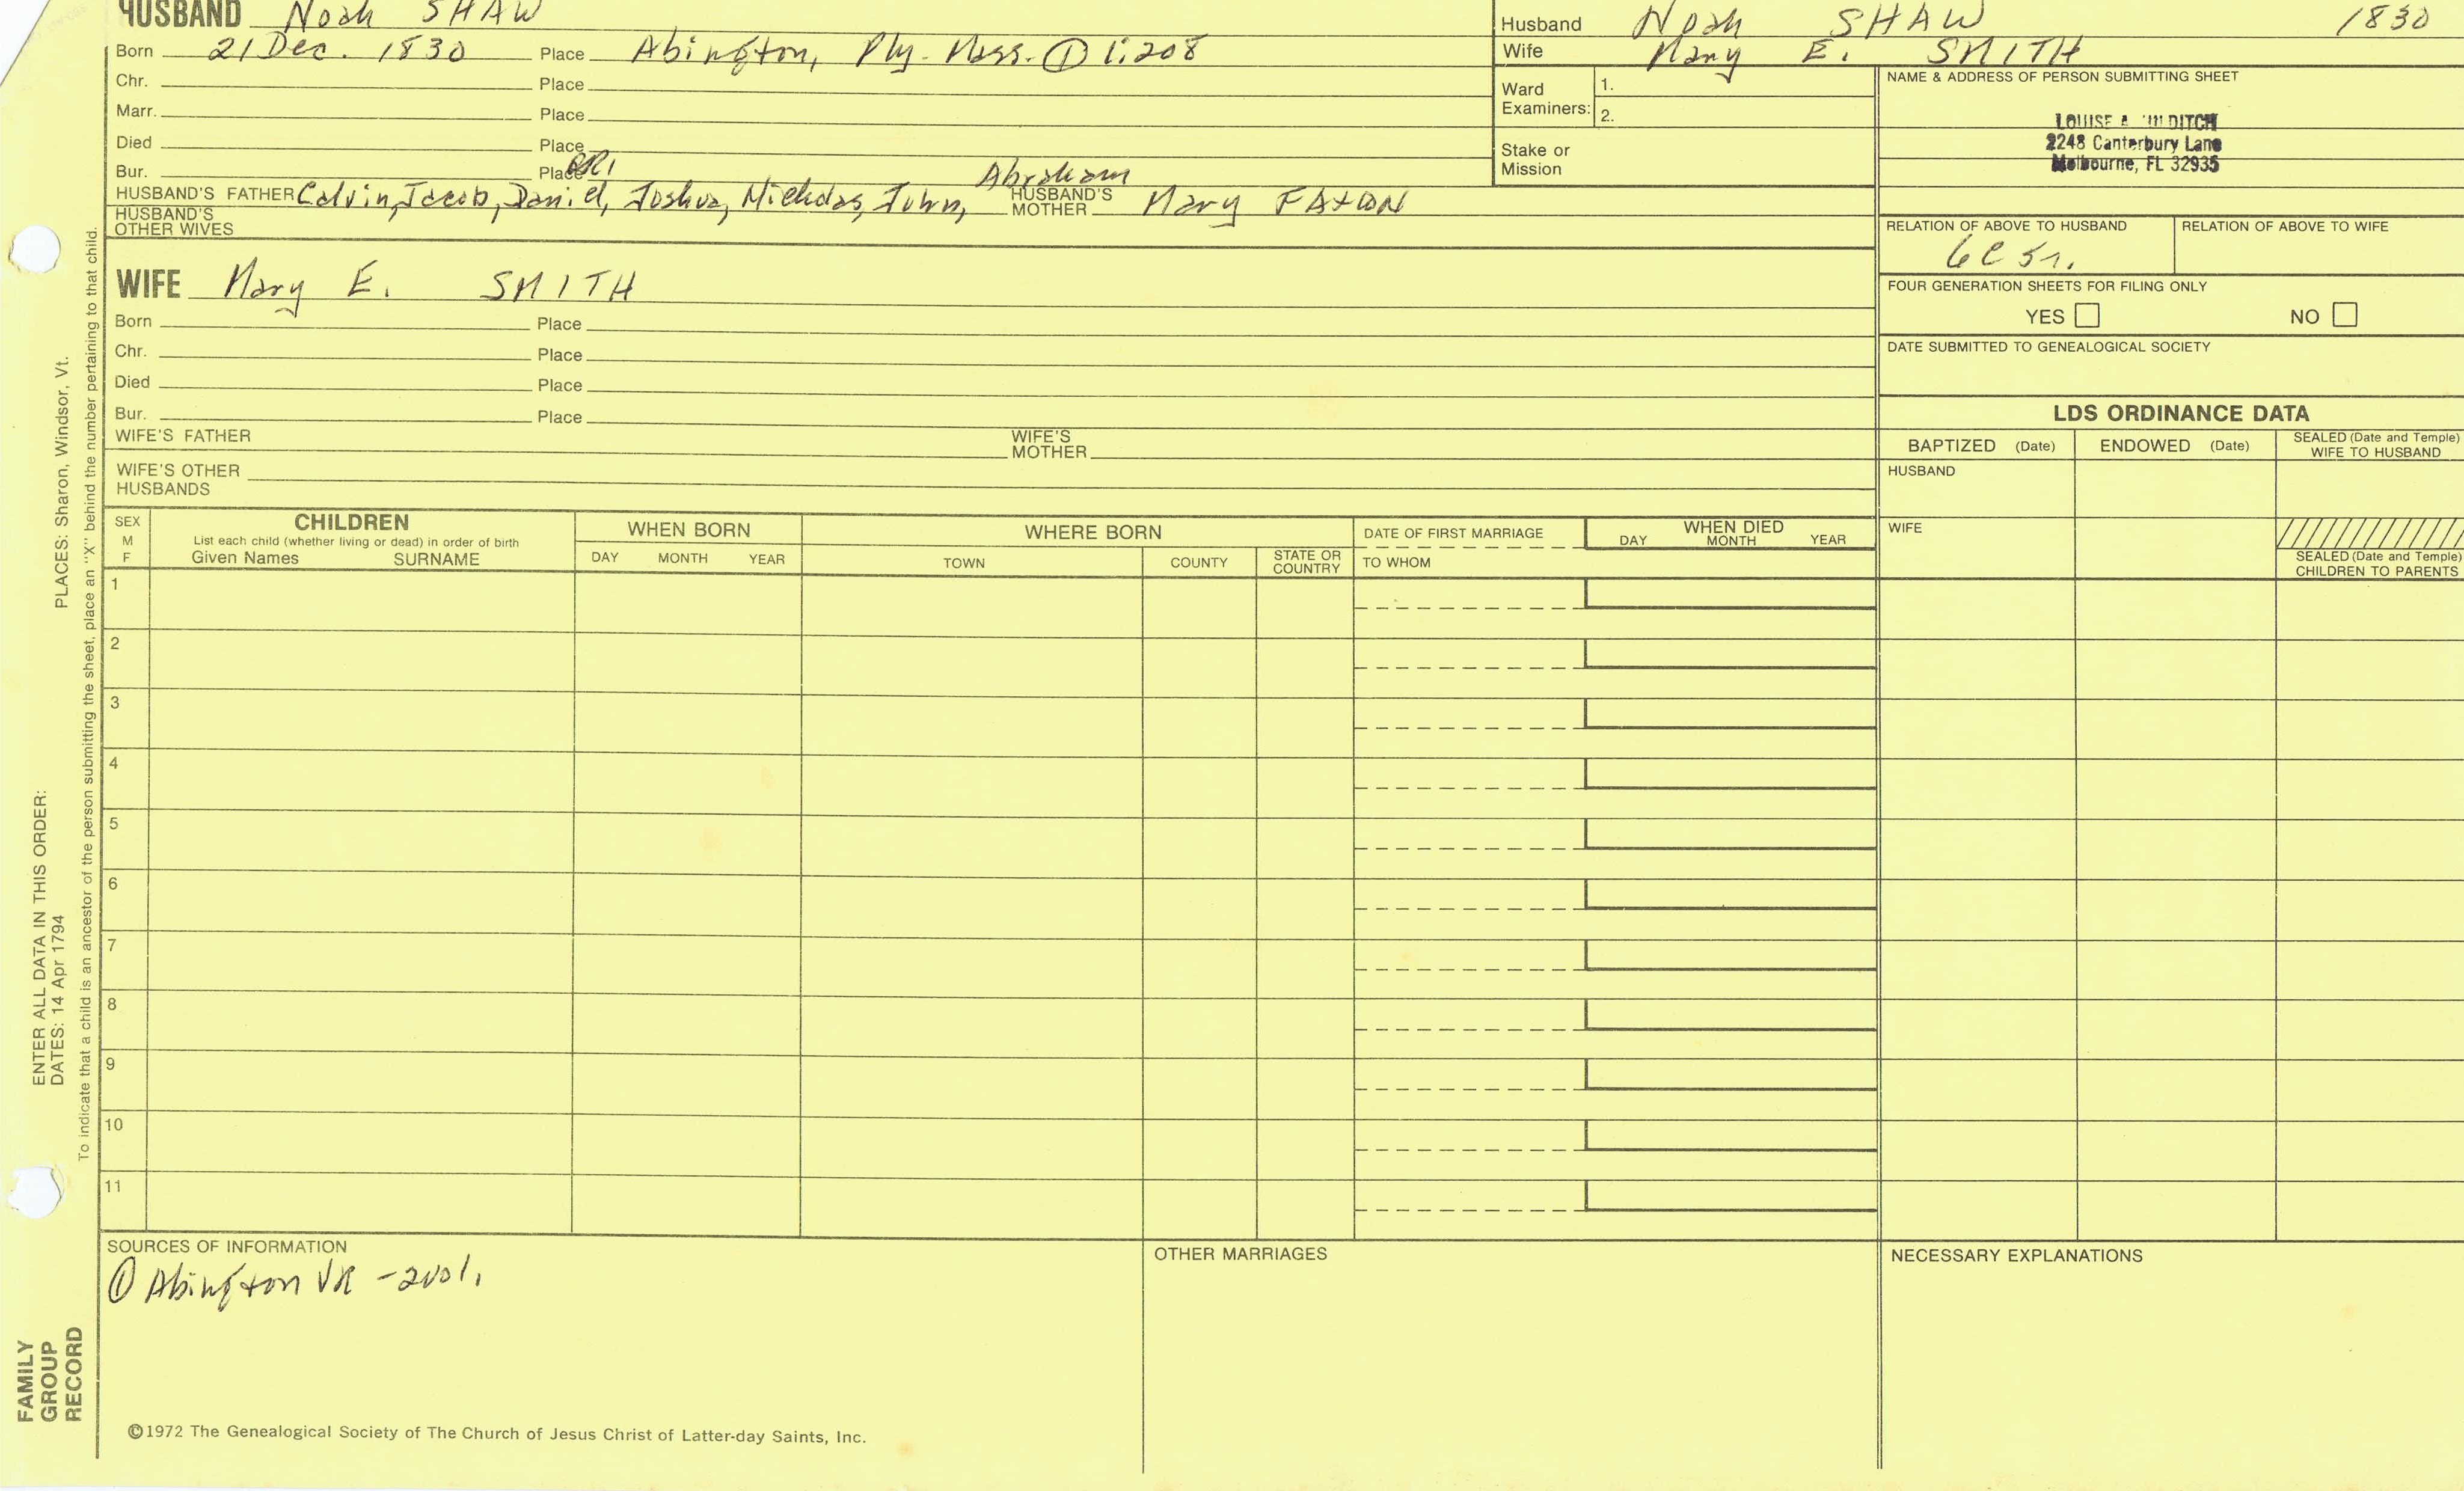 HUSBAND Noah SHAW
Born 21 Dec. 1830 Place Abington, Ply. Mass. ① 1:208
Chr. Place
Marr. Place
Died Place
Bur. Place
HUSBAND'S FATHER Calvin, Jacob, Daniel, Joshua, Nicholas, John, Abraham HUSBAND'S MOTHER Mary FAXON
HUSBAND'S OTHER WIVES
WIFE Mary E. SMITH
Born Place
Chr. Place
Died Place
Bur. Place
WIFE'S FATHER WIFE'S MOTHER
WIFE'S OTHER HUSBANDS
Husband Noah SHAW 1830
Wife Mary E. SMITH
Ward Examiners: 1.
2.
Stake or Mission
NAME & ADDRESS OF PERSON SUBMITTING SHEET
LOUISE A. DITCH
2248 Canterbury Lane
Melbourne, FL 32935
RELATION OF ABOVE TO HUSBAND RELATION OF ABOVE TO WIFE
6C 5r.
FOUR GENERATION SHEETS FOR FILING ONLY
YES NO
DATE SUBMITTED TO GENEALOGICAL SOCIETY
LDS ORDINANCE DATA
BAPTIZED (Date) ENDOWED (Date) SEALED (Date and Temple) WIFE TO HUSBAND
HUSBAND
WIFE
SEALED (Date and Temple) CHILDREN TO PARENTS
SEX M F
CHILDREN
List each child (whether living or dead) in order of birth
Given Names SURNAME
WHEN BORN
DAY MONTH YEAR
WHERE BORN
TOWN COUNTY STATE OR COUNTRY
DATE OF FIRST MARRIAGE
TO WHOM
WHEN DIED
DAY MONTH YEAR
1
2
3
4
5
6
7
8
9
10
11
SOURCES OF INFORMATION
① Abington VR - 2 vol.
OTHER MARRIAGES
NECESSARY EXPLANATIONS
©1972 The Genealogical Society of The Church of Jesus Christ of Latter-day Saints, Inc.
FAMILY GROUP RECORD
ENTER ALL DATA IN THIS ORDER:
DATES: 14 Apr 1794
PLACES: Sharon, Windsor, Vt.
To indicate that a child is an ancestor of the person submitting the sheet, place an "X" behind the number pertaining to that child.